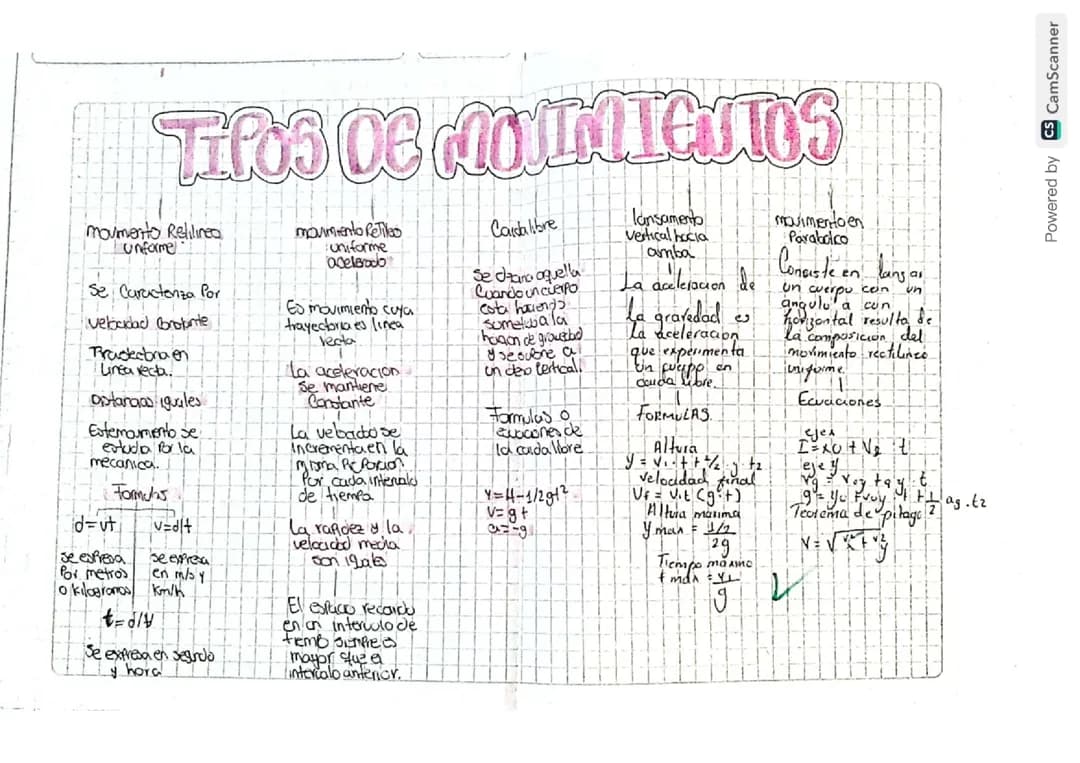 TIPOS DE MOVIMIENTOS
movimento Retilineo
uniforme
Se Caracteriza Por
velocidad Constante
Trayectoria en
Linea recta.
Distancias iguales
se
estudia Por la
mecanica.
Formulas
d=vt
v=d/t
se expresa
Por metros
o kilogramos
se expresa
en m/s y
Km/h
t=d/v
Se expresa en segndo
y hora
movimiento
uniforme
acelerado
Es movimiento cuya
trayectoria es linea
recta
La aceleracion
Se mantiene
Constante
La se
incrementa en la
misma
Por cada intervalo
de tiempo
La rapidez y la
velocidad media
son iguales
El espacio
en un intervulo de
mayor que a
intervalo anterior.
Caida libre
aquella
Cuando un cuerpo
esta haciendo
a la
de gravedad
y se a
un
Formulas o
ecuaciones de
la caida libre
Y=H-1/2gt²
V=gt
a=-g
lansamento
vertical hacia
arriba
La aceleracion de
la gravedad es
La aceleracion
que experimenta
un cuerpo en
caida libre.
FORMULAS.
Altura
velocidad final
Vf = Vit (g·t)
Altura maxima
Y max =
2g
Tiempo maximo
t max =
g
movimento en
Parabolico
Consiste en lanzar
un cuerpo con un
angulo a con
horizontal resulta de
la composición del
movimiento rectilineo
uniforme.
Ecuaciones
eje x
eje y
Teorema de pitago